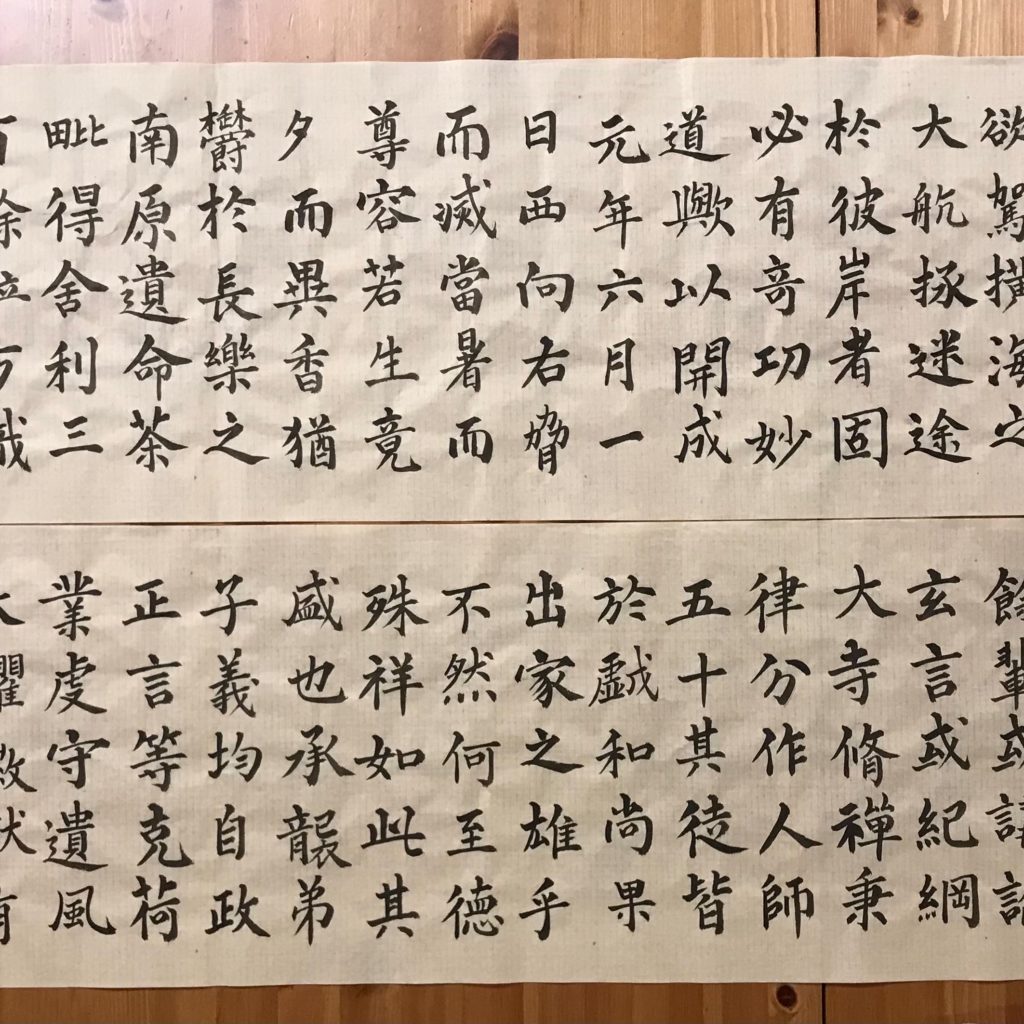 欲駕橫海之
大航拯迷途
於彼岸者固
必有奇功妙
道歟以開成
元年六月一
日西向右脅
而滅當暑而
尊容若生竟
夕而異香猶
鬱於長樂之
南原遺命荼
毗得舍利三
餘輩或講論
玄言或紀綱
大寺脩禪秉
律分作人師
五十其徒皆
於戲和尚果
出家之雄乎
不然何至德
殊祥如此其
盛也承襲弟
子義均自政
正言等克荷
業虔守遺風